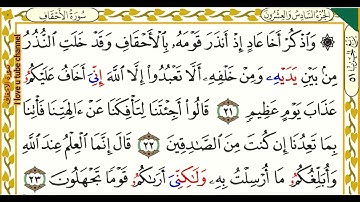 الجزء السادس والعشرون
سورة الأحقاف
۞ وَاذْكُرْ أَخَا عَادٍ إِذْ أَنذَرَ قَوْمَهُ بِالْأَحْقَافِ وَقَدْ خَلَتِ النُّذُرُ
مِنْ بَيْنِ يَدَيْهِ وَمِنْ خَلْفِهِ أَلَّا تَعْبُدُوا إِلَّا اللَّهَ إِنِّي أَخَافُ عَلَيْكُمْ
عَذَابَ يَوْمٍ عَظِيمٍ ٢١ قَالُوا أَجِئْتَنَا لِتَأْفِكَنَا عَنْ آلِهَتِنَا فَأْتِنَا
بِمَا تَعِدُنَا إِن كُنتَ مِنَ الصَّادِقِينَ ٢٢ قَالَ إِنَّمَا الْعِلْمُ عِندَ اللَّهِ
وَأُبَلِّغُكُم مَّا أُرْسِلْتُ بِهِ وَلَٰكِنِّي أَرَاكُمْ قَوْمًا تَجْهَلُونَ ٢٣
I love u tube channel